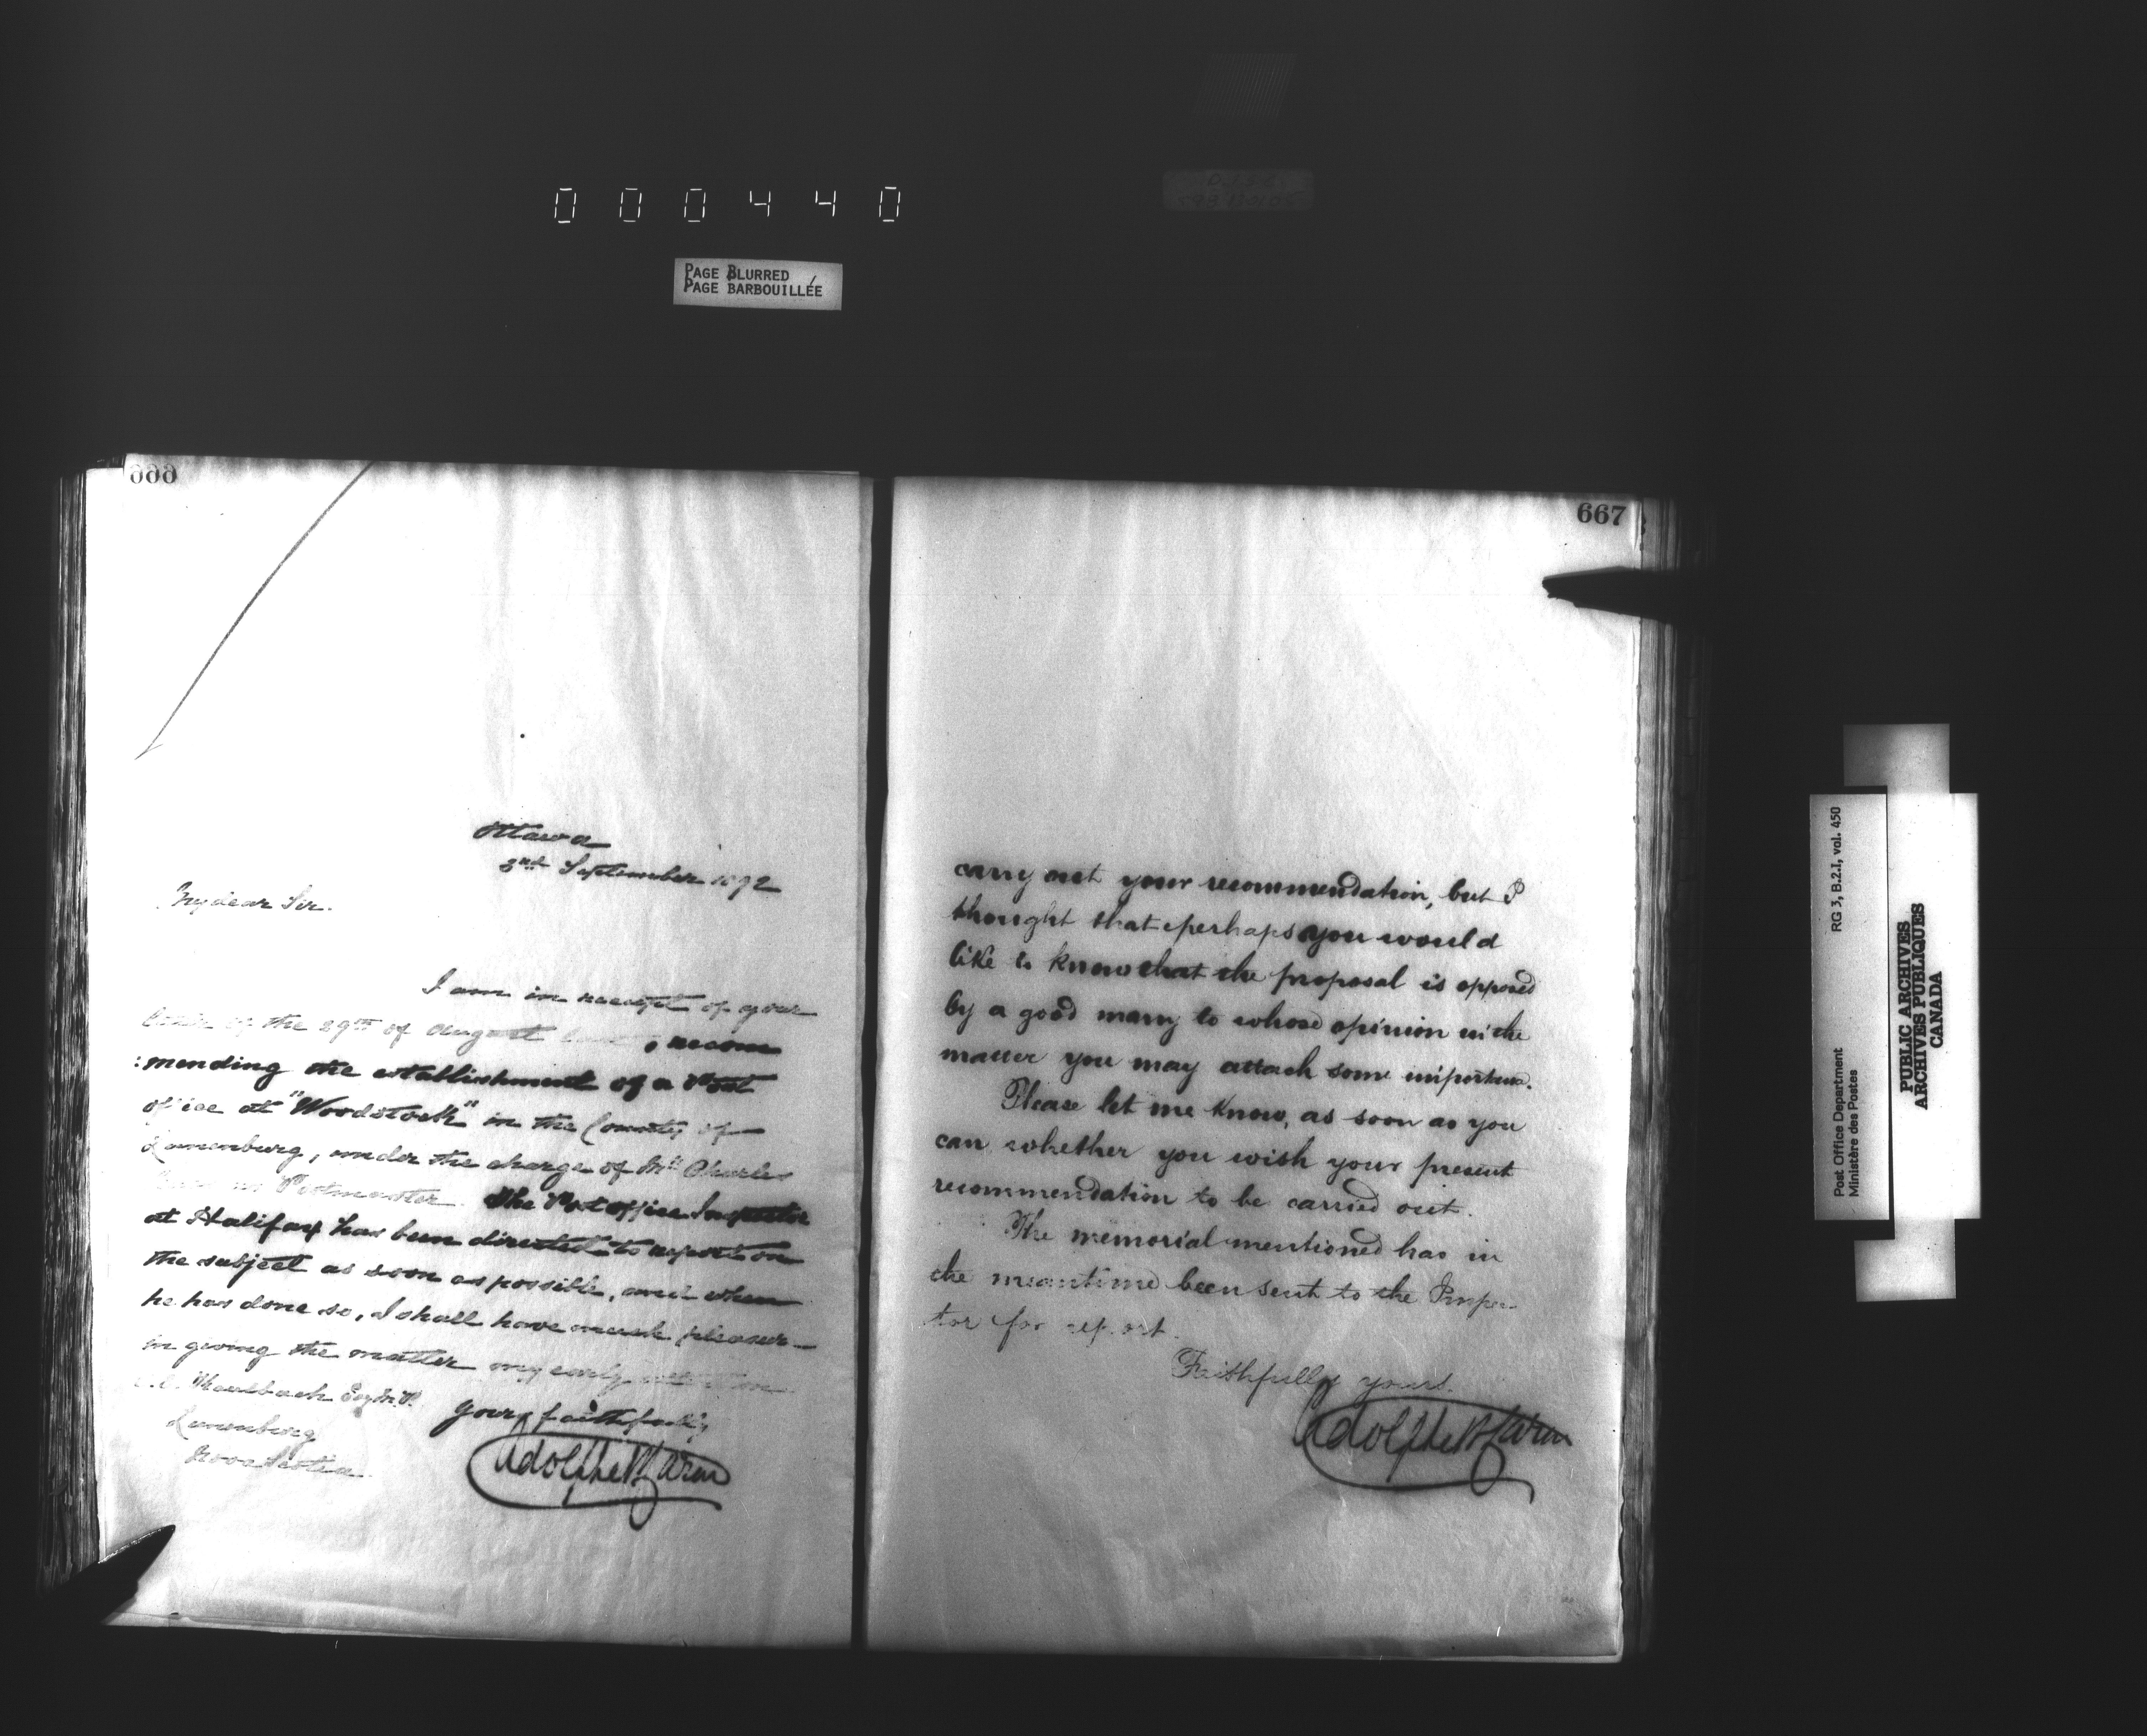 000440
PAGE BLURRED
PAGE BARBOUILLÉE
666
Ottawa
2nd September 1892
My dear Sir.
I am in receipt of your
letter of the 29th of August last, recom
:mending the establishment of a Post
office at "Woodstock" in the County of
Lunenburg, under the charge of Mr Charles
as Postmaster. The Post office Inspector
at Halifax has been directed to report on
the subject as soon as possible, and when
he has done so, I shall have much pleasure
in giving the matter my early attention
Kaulbach Esq M.P.
Lunenburg
Nova Scotia
Yours faithfully
Adolphe P. Caron
667
carry out your recommendation, but I
thought that perhaps you would
like to know that the proposal is opposed
by a good many to whose opinion in the
matter you may attach some importance.
Please let me know, as soon as you
can whether you wish your present
recommendation to be carried out.
The memorial mentioned has in
the meantime been sent to the Inspec
tor for report.
Faithfully yours.
Adolphe P. Caron
Post Office Department
Ministère des Postes
RG 3, B.2.I, vol. 450
PUBLIC ARCHIVES
ARCHIVES PUBLIQUES
CANADA